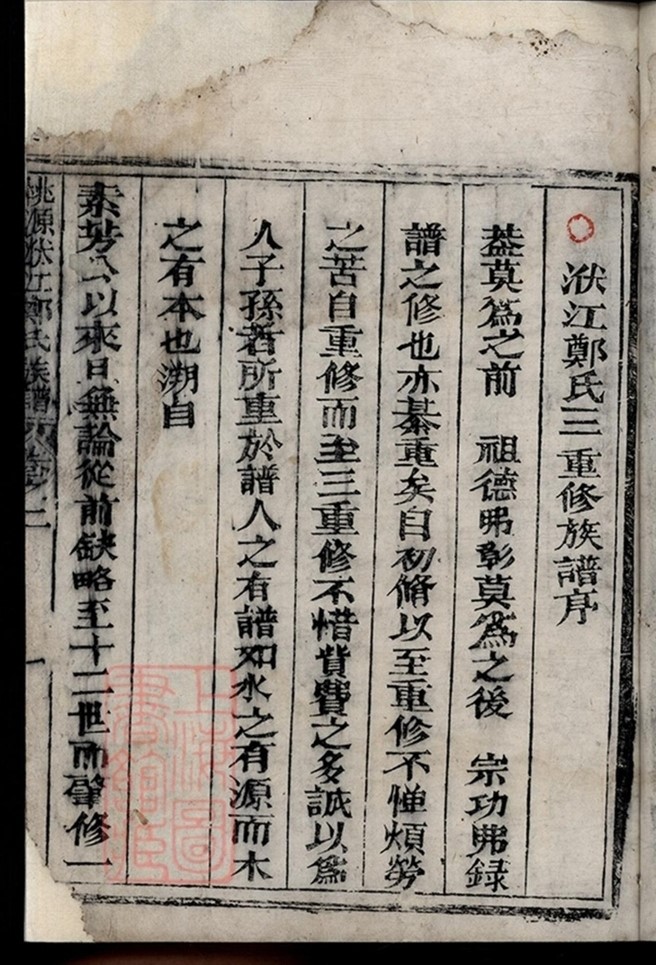 洑江鄭氏三重修族譜序
蓋莫爲之前 祖德弗彰莫爲之後 宗功弗録
譜之修也亦綦重矣自初脩以至重修不憚煩勞
之苦自重修而至三重修不惜貲費之多誠以爲
人子孫者所重於譜人之有譜如水之有源而木
之有本也溯自
素芳公以來且無論從前缺略至十二世而肇修一
桃源洑江鄭氏族譜 卷 二 一
上海圖書館藏